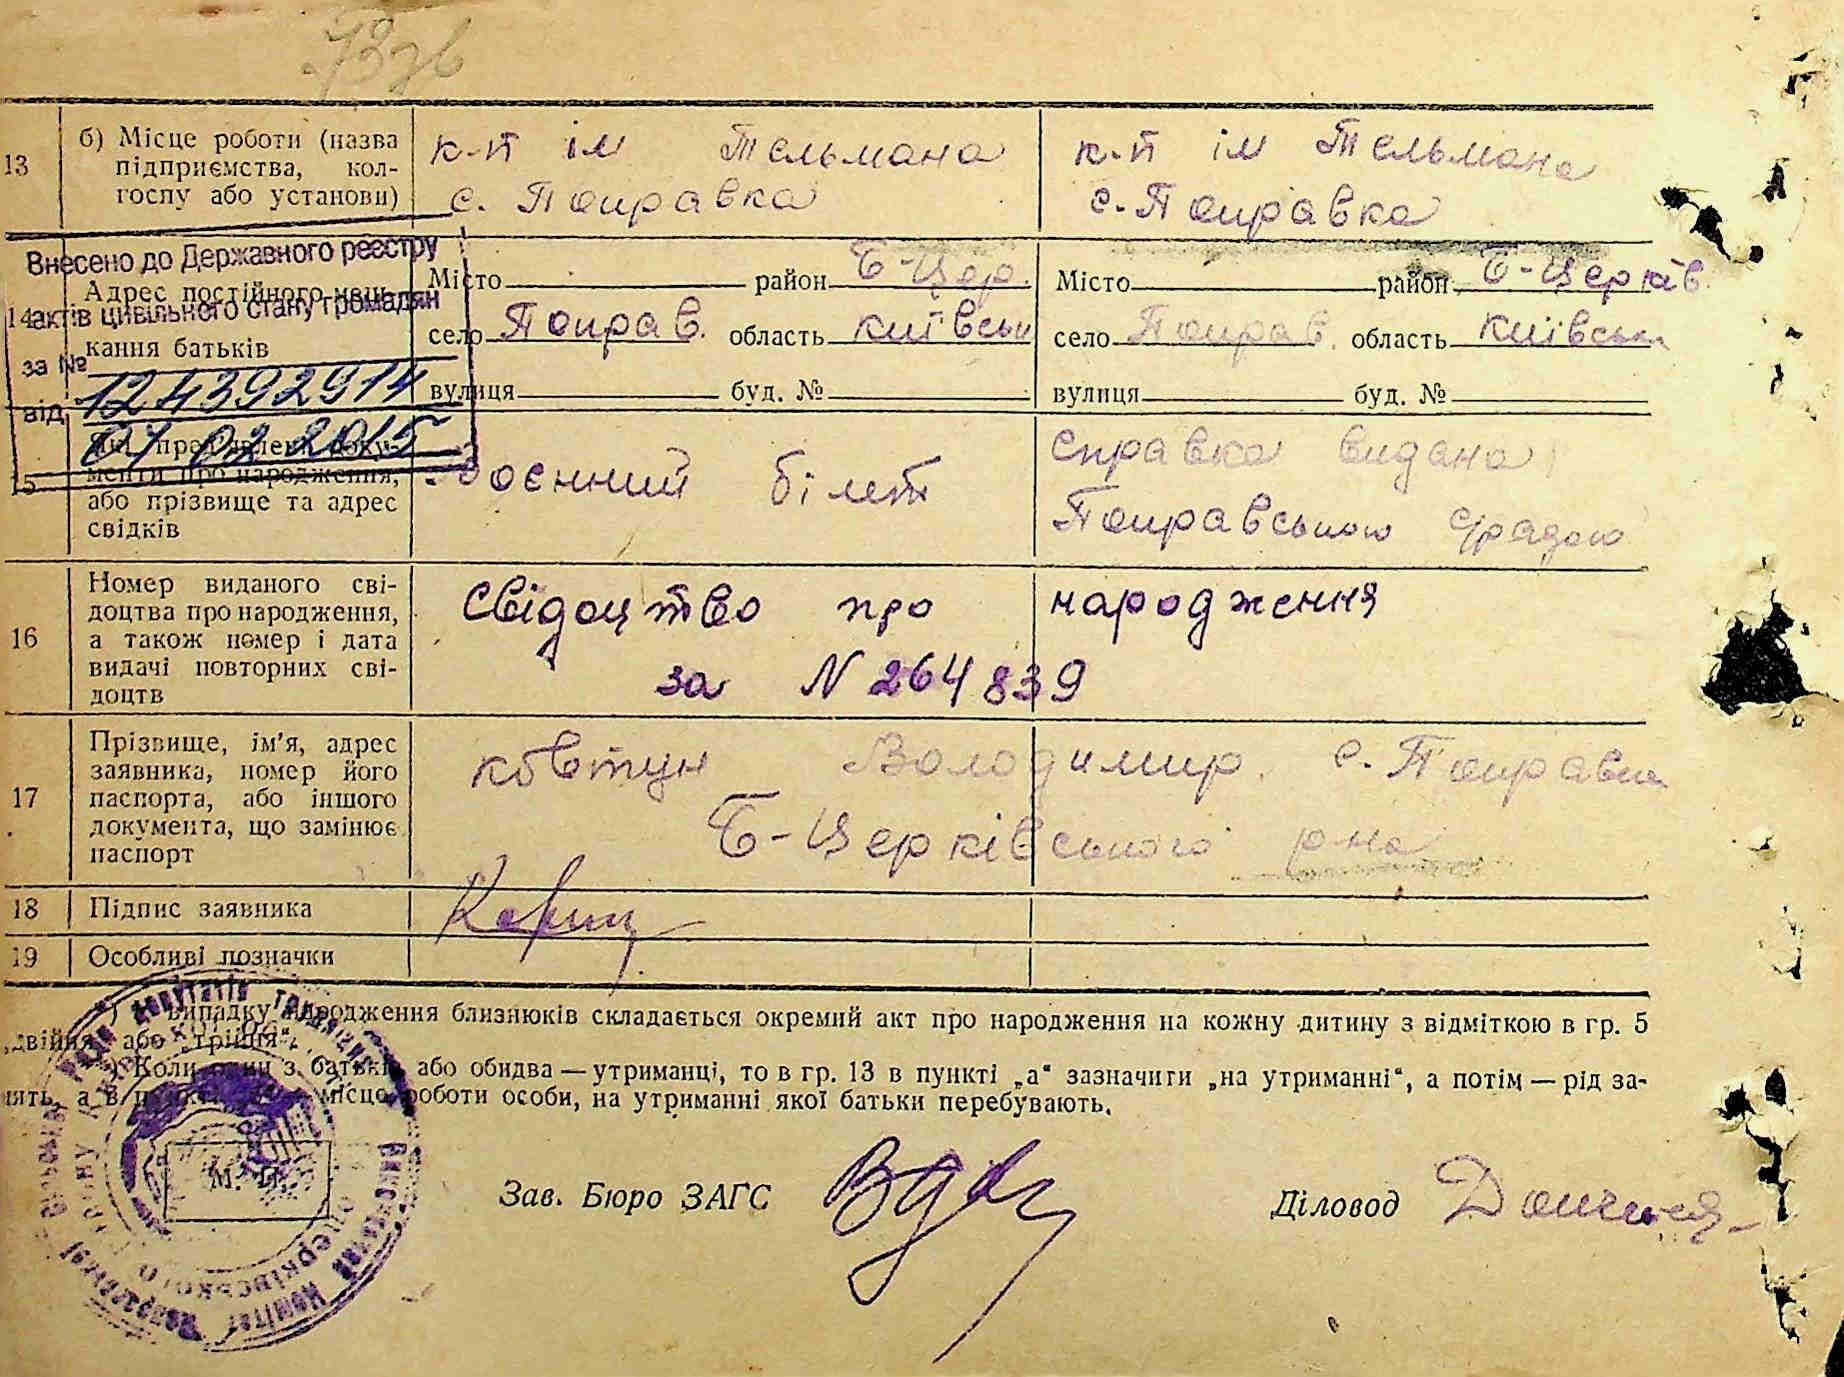 13
б) Місце роботи (назва
підприємства, кол-
госпу або установи)
к-п ім Тельмана
с. Поправка
к-п ім Тельмана
с. Поправка
Внесено до Державного реєстру
актів цивільного стану громадян
за № 124392914
від 02 2015
14
Адрес постійного меш-
кання батьків
Місто район Б-Цер.
село Поправ. область Київськ
вулиця буд. №
Місто район Б-Церків.
село Поправ. область Київськ
вулиця буд. №
15
Які пред'явлені доку-
менти про народження,
або прізвище та адрес
свідків
Воєнний білет
Справка видана
Поправською с/радою
16
Номер виданого сві-
доцтва про народження,
а також номер і дата
видачі повторних сві-
доцтв
Свідоцтво про народження
за N 264839
17
Прізвище, ім'я, адрес
заявника, номер його
паспорта, або іншого
документа, що замінює
паспорт
Ковтун Володимир с. Поправка
Б-Церківського р-на
18
Підпис заявника
19
Особливі позначки
випадку народження близнюків складається окремий акт про народження на кожну дитину з відміткою в гр. 5
„двійня" або „трійня".
) Коли один з батьків або обидва — утриманці, то в гр. 13 в пункті „а" зазначити „на утриманні", а потім — рід за-
нять, а в пункті місце роботи особи, на утриманні якої батьки перебувають.
М. П.
Зав. Бюро ЗАГС
Діловод